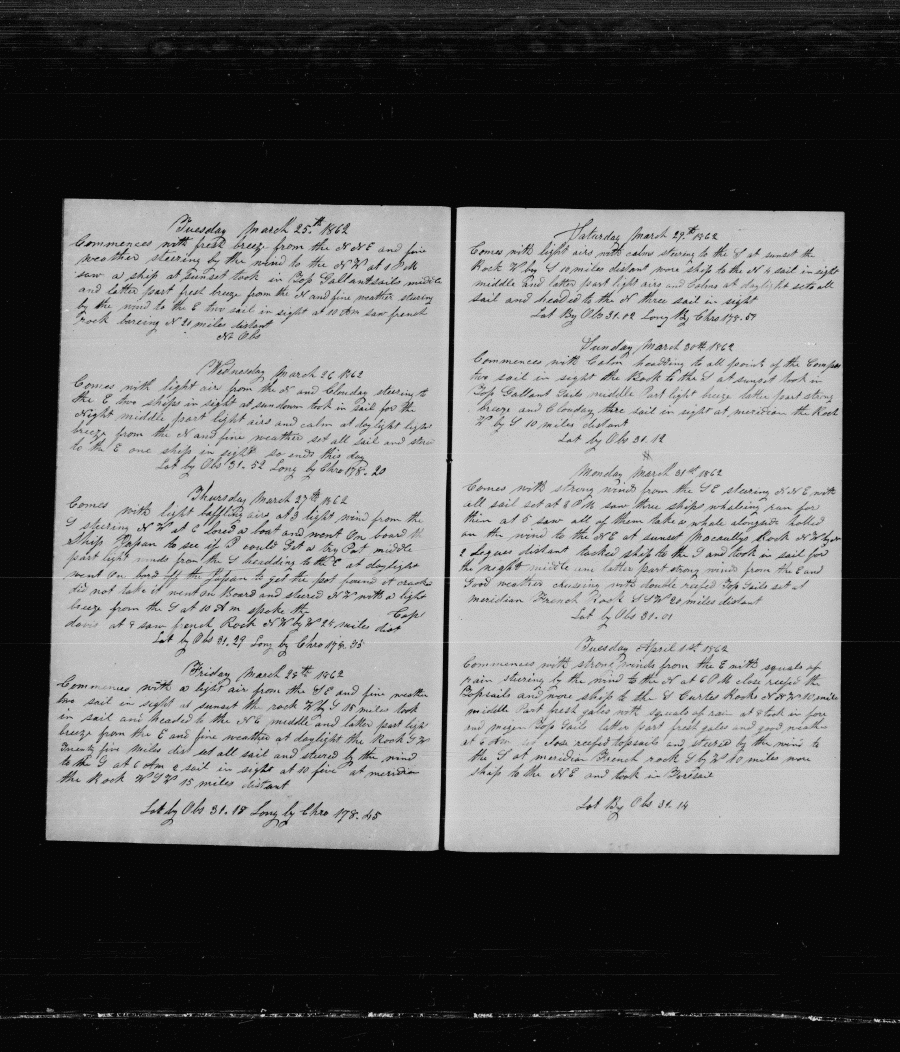 Tuesday March 25th 1862
Commences with fresh breeze from the N N E and fine
weather steering by the wind to the N W at 1 P M
saw a ship at sunset took in Top Gallantsails middle
and latter part fresh breeze from the N and fine weather steering
by the wind to the E two sail in sight at 10 Am saw french
Rock bareing N 21 miles distant
No Obs
Wednesday March 26 1862
Comes with light airs from the N and Clouday steering to
the E two ships in sight at sundown took in sail for the
Night middle part light airs and calm at daylight light
breeze from the N and fine weather set all sail and steered
to the E one ship in sight so ends this day
Lat by Obs 31.52 Long by Chro 178.20
Thursday March 27th 1862
Comes with light baffling airs at 3 light wind from the
S steering N W at 6 lored a boat and went On board the
Ship Japan to see if I could Get a try Pot middle
part light winds from the S headding to the E at daylight
went On bord off the Japan to get the pot found it crackt
did not take it went on Board and steered N W with a light
breeze from the S at 10 A m spoke the Cap
davis at 8 saw french Rock N W by W 24 miles dist
Lat by Obs 31.29 Long by Chro 178.35
Friday March 28th 1862
Commences with a light air from the S E and fine weather
two sail in sight at sunset the rock W by S 15 miles took
in sail and headed to the N E middle and latter part light
breeze from the E and fine weather at daylight the Rock S W
Twenty five miles dist set all sail and steered by the wind
to the S at 6 Am 2 sail in sight at 10 five at meridian
the Rock W S W 15 miles distant
Lat by Obs 31.18 Long by Chro 178.45
Saturday March 29th 1862
Comes with light airs with calms steering to the S at sunset the
Rock W by S 10 miles distant wore ship to the N 4 sail in sight
middle and latter part light airs and Calms at daylight set all
sail and headed to the N three sail in sight
Lat By Obs 31.12 Long By Chro 178.57
Sunday March 30th 1862
Commences with Calm headding to all points of the Compass
two sail in sight the Rock to the S at sunset took in
Top Gallant Sails middle Part light breeze latter part strong
breeze and Clouday three sail in sight at meridian the Rock
W by S 10 miles distant
Lat by Obs 31.12
Monday March 31st 1862
Comes with strong winds from the S E steering N N E with
all sail set at 2 P M saw three ships whaleing run for
them at 5 saw all of them take a whale alongside holled
on the wind to the N E at sunset Macaullys Rock N W by W
2 Legues distant tacked ship to the S and took in sail for
the neght middle and latter part strong wind from the E and
Good weather cruseing with double reefed Top Sails set at
meridian French Rock S S W 20 miles distant
Lat by Obs 31.01
Tuesday April 1st 1862
Commences with strong winds from the E with squals of
rain steering by the wind to the N at 6 P M close reefed the
Topsails and wore ship to the S Curtes Rocks N N W 10 miles
middle Part fresh gales with squals of rain at 8 took in fore
and mizen Top Sails latter part fresh gales and good weather
at 6 Am set close reefed topsails and steered by the wind to
the S at meridian French rock S by W 10 miles wore
ship to the N E and took in Foresail
Lat By Obs 31.14